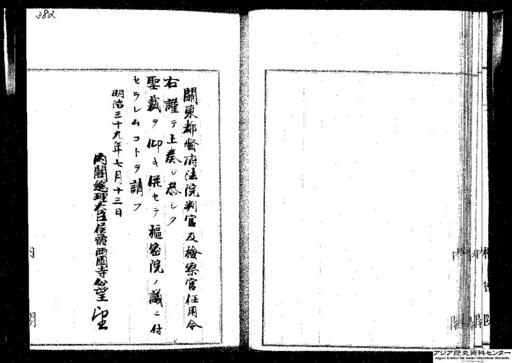 382
關東都督府法院判官及檢察官任用令
右謹テ上奏シ恭シク
聖裁ヲ仰キ併セテ樞密院ノ議ニ付
セラレムコトヲ請フ
明治三十九年七月十三日
內閣總理大臣侯爵西園寺公望
内閣
アジア歴史資料センター
Japan Center for Asian Historical Records